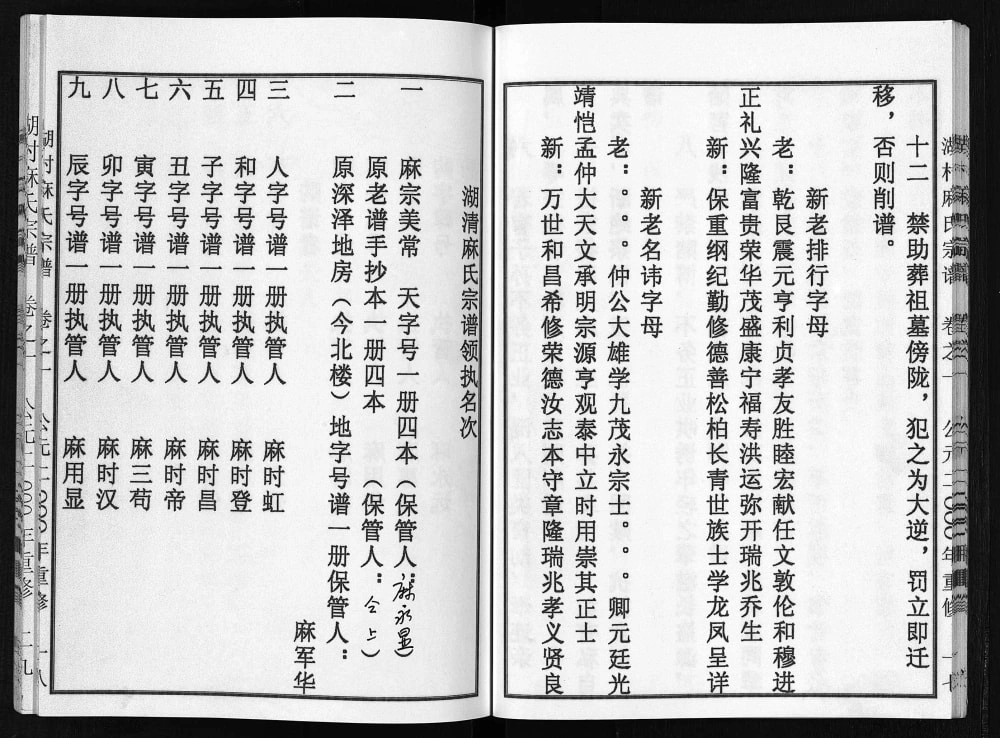 湖村麻氏宗谱 卷之一 公元二000年重修 十七
十二 禁助葬祖墓傍陇，犯之为大逆，罚立即迁
移，否则削谱。
新老排行字母
老：乾艮震元亨利贞孝友胜睦宏献任文敦伦和穆进
正礼兴隆富贵荣华茂盛康宁福寿洪运弥开瑞兆乔生
新：保重纲纪勤修德善松柏长青世族士学龙凤呈详
新老名讳字母
老：。。。。仲公大雄学九茂永宗士。。。卿元廷光
靖恺孟仲大天文承明宗源亨观泰中立时用崇其正士
新：万世和昌希修荣德汝志本守章隆瑞兆孝义贤良
湖清麻氏宗谱领执名次
一 麻宗美常 天字号一册四本（保管人：麻永显）
原老谱手抄本一册四本（保管人：仝上）
二 原深泽地房（今北楼）地字号谱一册保管人：
麻军华
三 人字号谱一册执管人 麻时虹
四 和字号谱一册执管人 麻时登
五 子字号谱一册执管人 麻时昌
六 丑字号谱一册执管人 麻时帝
七 寅字号谱一册执管人 麻三苟
八 卯字号谱一册执管人 麻时汉
九 辰字号谱一册执管人 麻用显
湖村麻氏宗谱 卷之一 公元二000年重修 十八
湖村麻氏宗谱 卷之一 公元二000年重修 十九